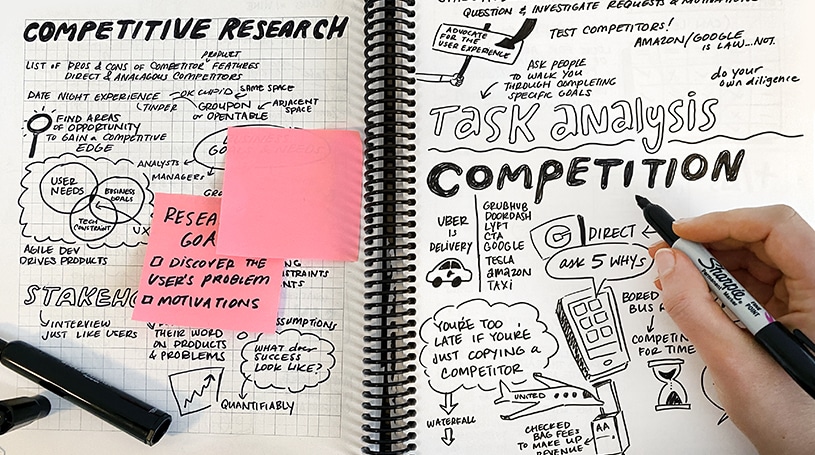 COMPETITIVE RESEARCH
PRODUCT
LIST OF PROS & CONS OF COMPETITOR FEATURES
DIRECT & ANALAGOUS COMPETITORS
DATE NIGHT EXPERIENCE
OK CUPID
SAME SPACE
TINDER
GROUPON
OR OPENTABLE
ADJACENT
SPACE
FIND AREAS
OF OPPORTUNITY
TO GAIN A COMPETITIVE
EDGE
ANALYSTS
MANAGERS
USER
NEEDS
BUSINESS
GOALS
TECH
CONSTRAINT
UX
AGILE DEV
DRIVES PRODUCTS
RESEA
GOA
DISCOVER THE
USER'S PROBLEM
MOTIVATIONS
STAKEHO
INTERVIEW
JUST LIKE USERS
THEIR WORD
ON PRODUCTS
& PROBLEMS
SSUMPTIONS
WHAT does
SUCCESS
LOOK LIKE?
QUANTIFIABLY
QUESTION & INVESTIGATE REQUESTS & MOTIVATIONS
ADVOCATE
FOR THE
USER EXPERIENCE
TEST COMPETITORS!
AMAZON/GOOGLE
IS LAW...NOT.
ASK PEOPLE
TO WALK YOU
THROUGH COMPLETING
SPECIFIC GOALS
do your
own diligence
TASK analysis
COMPETITION
UBER
IS
DELIVERY
GRUBHUB
DOORDASH
LYFT
CTA
GOOGLE
TESLA
amazon
TAXI
DIRECT
ask 5 WHYs
BORED
BUS R
COMPETIN
FOR TIME
YOU'RE TOO
LATE IF YOU'RE
JUST COPYING a
COMPETITOR
WATERFALL
UNITED
CHECKED
BAG FEES
TO MAKE UP
REVENUE
AA
Sharpie